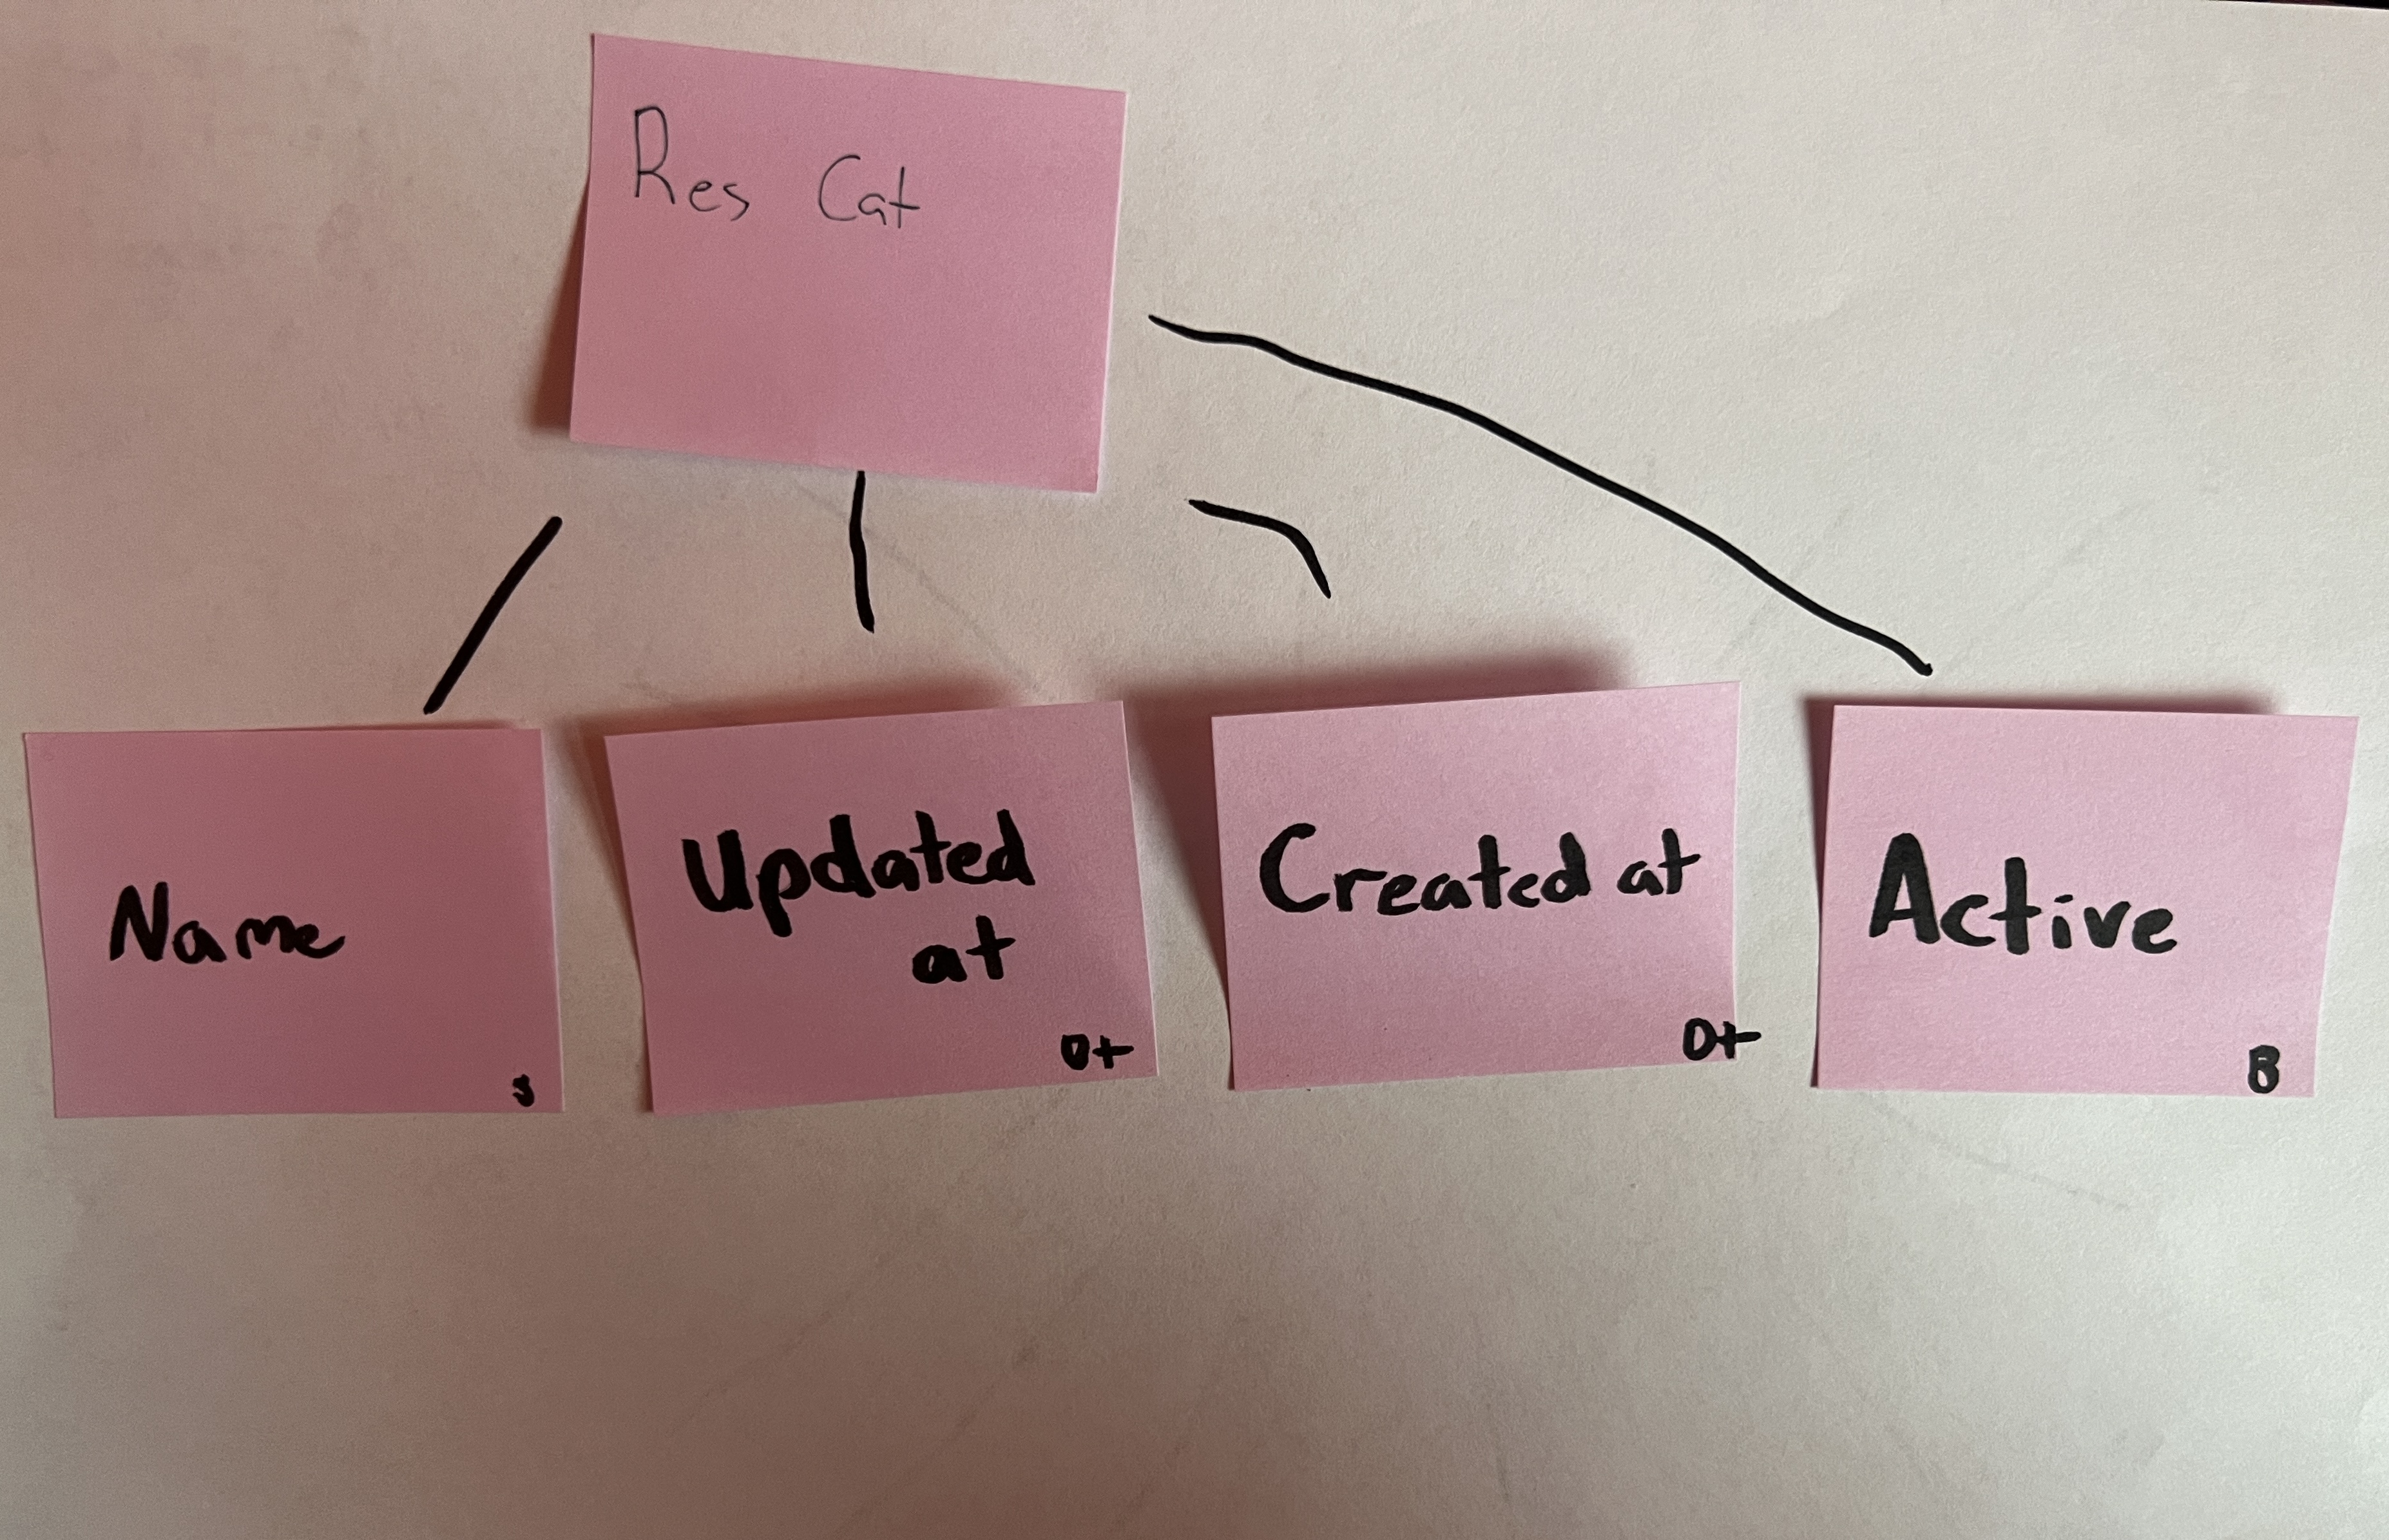 Res Cat
Name
s
Updated
at
Dt
Created at
Dt
Active
B